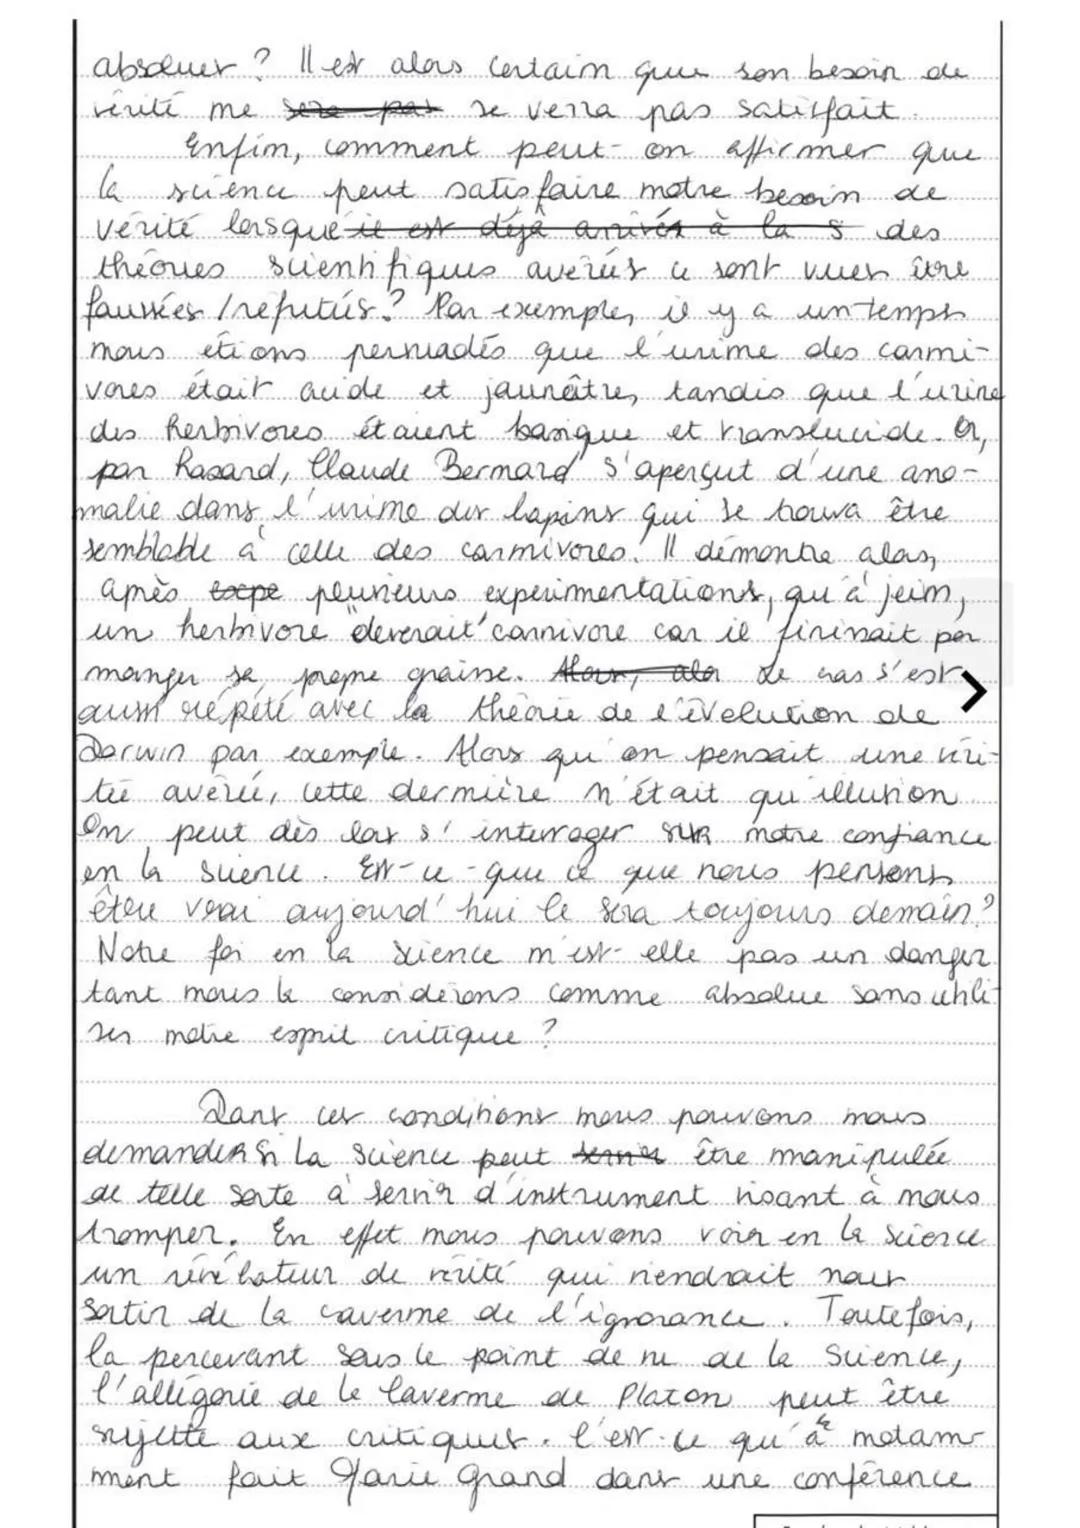 absoluer ? Il est alors certain que son besoin de
vérité ne sera pas se verra pas satisfait.
Enfin, comment peut-on affirmer que
la science peut satisfaire notre besoin de
vérité lorsque il est déjà arrivés à la s des
théories scientifiques avérées ce sont vues être
faussées / réfutés ? Par exemple, il y a un temps
nous étions persuadés que l'urine des carni-
vores était acide et jaunâtre, tandis que l'urine
des herbivores étaient basique et translucide. Or,
par hasard, Claude Bernard s'aperçut d'une ano-
malie dans l'urine des lapins qui se trouva être
semblable à celle des carnivores. Il démontre alors,
après plusieurs experimentations, qu'à jeim,
un herbivore "devenait" carnivore car il finissait par
manger sa propre graisse. Alors, alor Le cas s'est
aussi répété avec la théorie de l'évolution de
Darwin par exemple. Alors qu'on pensait une véri-
tée avérée, cette dernière n'était qu'illusion.
On peut dès lors s'interroger sur notre confiance
en la science. Est-ce-que ce que nous pensons
être vrai aujourd'hui le sera toujours demain ?
Notre foi en la science n'est-elle pas un danger
tant nous la considérons comme absolue sans utili-
ser notre esprit critique ?
Dans ces conditions nous pouvons nous
demander si la science peut servir être manipulée
de telle sorte à servir d'instrument visant à nous
tromper. En effet nous pouvons voir en la science
un révélateur de vérité qui viendrait nous
sortir de la caverne de l'ignorance. Toutefois,
la percevant sous le point de vu de la science,
l'allégorie de la Caverne de Platon peut être
sujette aux critiques. C'est ce qu'a notam-
ment fait Marie Grand dans une conférence